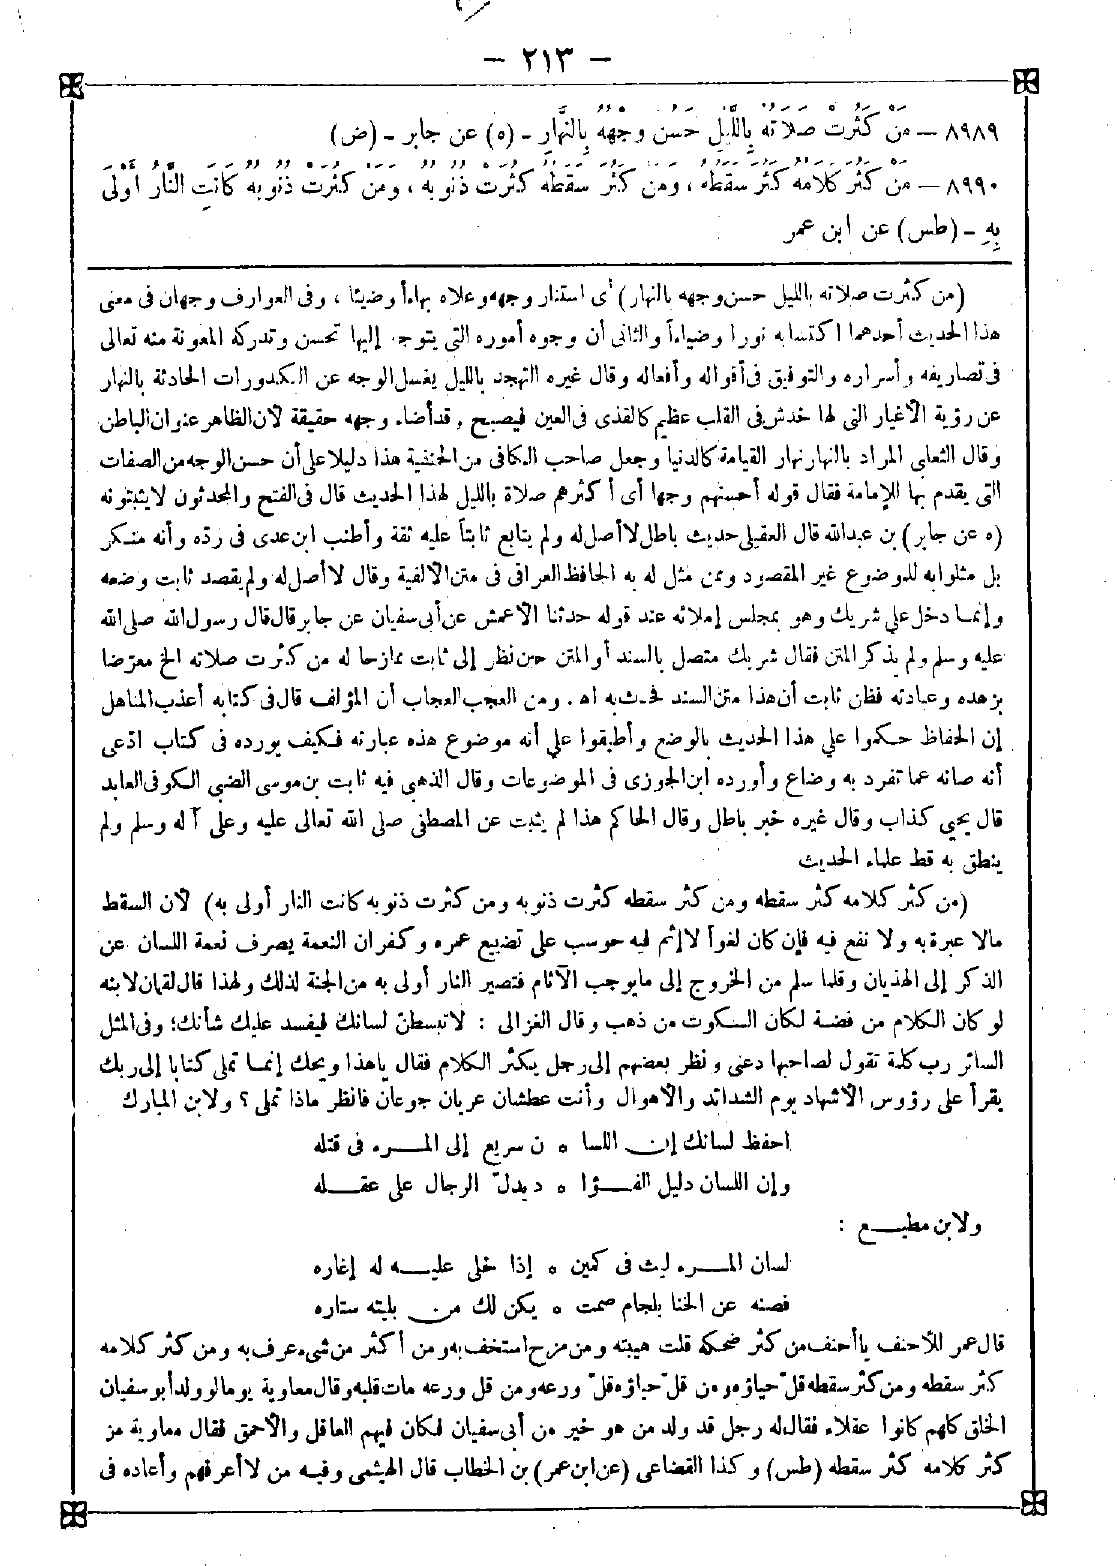 — ٢١٣ —
٨٩٨٩ — مَنْ كَثُرَتْ صَلَاتُهُ بِاللَّيْلِ حَسُنَ وَجْهُهُ بِالنَّهَارِ - (ه) عن جابر - (ض)
٨٩٩٠ — مَنْ كَثُرَ كَلَامُهُ كَثُرَ سَقَطُهُ ، وَمَنْ كَثُرَ سَقَطُهُ كَثُرَتْ ذُنُوبُهُ ، وَمَنْ كَثُرَتْ ذُنُوبُهُ كَانَتِ النَّارُ أَوْلَى
بِهِ - (طس) عن ابن عمر
(من كثرت صلاته بالليل حسن وجهه بالنهار) أى استنار وجهه وعلاه بهاءاً وضيئا ، وفى العوارف وجهان فى معنى
هذا الحديث أحدهما اكتسابه نورا وضياءاً والثانى أن وجوه أموره التى يتوجه إليها تحسن وتدركه المعونة منه تعالى
فى تصاريفه وأسراره والتوفيق فى أقواله وأفعاله وقال غيره التهجد بالليل يغسل الوجه عن الكدورات الحادثة بالنهار
عن رؤية الأغيار التى لها خدش فى القلب عظيم كالقذى فى العين فيصبح , قد أضاء وجهه حقيقة لأن الظاهر عنوان الباطن
وقال الثعالبى المراد بالنهار نهار القيامة كالدنيا وجعل صاحب الكافى من الحنفية هذا دليلا على أن حسن الوجه من الصفات
التى يقدم بها للإمامة فقال قوله أحسنهم وجها أى أكثرهم صلاة بالليل لهذا الحديث قال فى الفتح والمحدثون لا يثبتونه
(ه عن جابر) بن عبدالله قال العقيلى حديث باطل لا أصل له ولم يتابع ثابتاً عليه ثقة وأطنب ابن عدى فى رده وأنه منكر
بل مثلوا به للموضوع غير المقصود وممن مثل له به الحافظ العراقى فى متن الألفية وقال لا أصل له ولم يقصد ثابت وضعه
وإنما دخل على شريك وهو بمجلس إملائه عند قوله حدثنا الأعمش عن أبى سفيان عن جابر قال قال رسول الله صلى الله
عليه وسلم ولم يذكر المتن فقال شريك متصل بالسند أو المتن حين نظر إلى ثابت ممازحا له من كثرت صلاته الخ معرضا
بزهده وعبادته فظن ثابت أن هذا متن السند فحدث به اهـ . ومن العجب العجاب أن المؤلف قال فى كتابه أعذب المناهل
إن الحفاظ حكموا على هذا الحديث بالوضع وأطبقوا على أنه موضوع هذه عبارته فكيف يورده فى كتاب ادعى
أنه صانه عما تفرد به وضاع وأورده ابن الجوزى فى الموضوعات وقال الذهبى فيه ثابت بن موسى الضبى الكوفى العابد
قال يحيى كذاب وقال غيره خبر باطل وقال الحاكم هذا لم يثبت عن المصطفى صلى الله تعالى عليه وعلى آله وسلم ولم
ينطق به قط علماء الحديث
(من كثر كلامه كثر سقطه ومن كثر سقطه كثرت ذنوبه ومن كثرت ذنوبه كانت النار أولى به) لأن السقط
مالا عبرة به ولا نفع فيه فإن كان لغواً لا إثم فيه حوسب على تضييع عمره وكفران النعمة بصرف نعمة اللسان عن
الذكر إلى الهذيان وقلما سلم من الخروج إلى ما يوجب الآثام فتصير النار أولى به من الجنة لذلك ولهذا قال لقمان لابنه
لو كان الكلام من فضة لكان السكوت من ذهب وقال الغزالى : لا تبسطنّ لسانك فيفسد عليك شأنك؛ وفى المثل
السائر رب كلمة تقول لصاحبها دعنى ونظر بعضهم إلى رجل يكثر الكلام فقال ياهذا ويحك إنما تملى كتابا إلى ربك
يقرأ على رؤوس الأشهاد يوم الشدائد والأهوال وأنت عطشان عريان جوعان فانظر ماذا تملى ؟ ولابن المبارك
احفظ لسانك إن اللسا ه ن سريع إلى المرء فى قتله
وإن اللسان دليل الفؤا ه د يدلّ الرجال على عقله
ولابن مطيع :
لسان المرء ليث فى كمين ه إذا خلى عليه له إغاره
فصنه عن الخنا بلجام صمت ه يكن لك من بليته ستاره
قال عمر للأحنف يا أحنف من كثر ضحكه قلت هيبته ومن مزح استخف به ومن أكثر من شىء عرف به ومن كثر كلامه
كثر سقطه ومن كثر سقطه قلّ حياؤه ومن قلّ حياؤه قلّ ورعه ومن قل ورعه مات قلبه وقال معاوية يوما لو ولد أبو سفيان
الخلق كلهم كانوا عقلاء فقال له رجل قد ولد من هو خير من أبى سفيان فكان فيهم العاقل والأحمق فقال معاوية من
كثر كلامه كثر سقطه (طس) وكذا القضاعى (عن ابن عمر) بن الخطاب قال الهيثمى وفيه من لا أعرفهم وأعاده فى